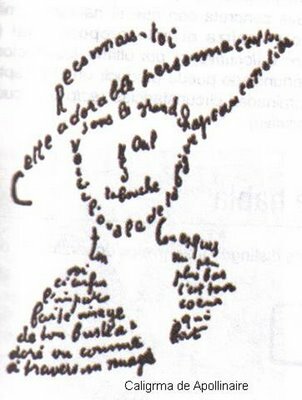 Reconnais-toi
Cette adorable personne c'est toi
Sous le grand chapeau canotier
Œil
la bouche
Voici l'ovale de ta figure
Ton
Cou exquis
voi
ci enfin
l'impar
faite image
de ton buste a
doré vu comme
à travers un nuage
un peu
plus bas
c'est ton
coeur
qui
bat
Caligrma de Apollinaire